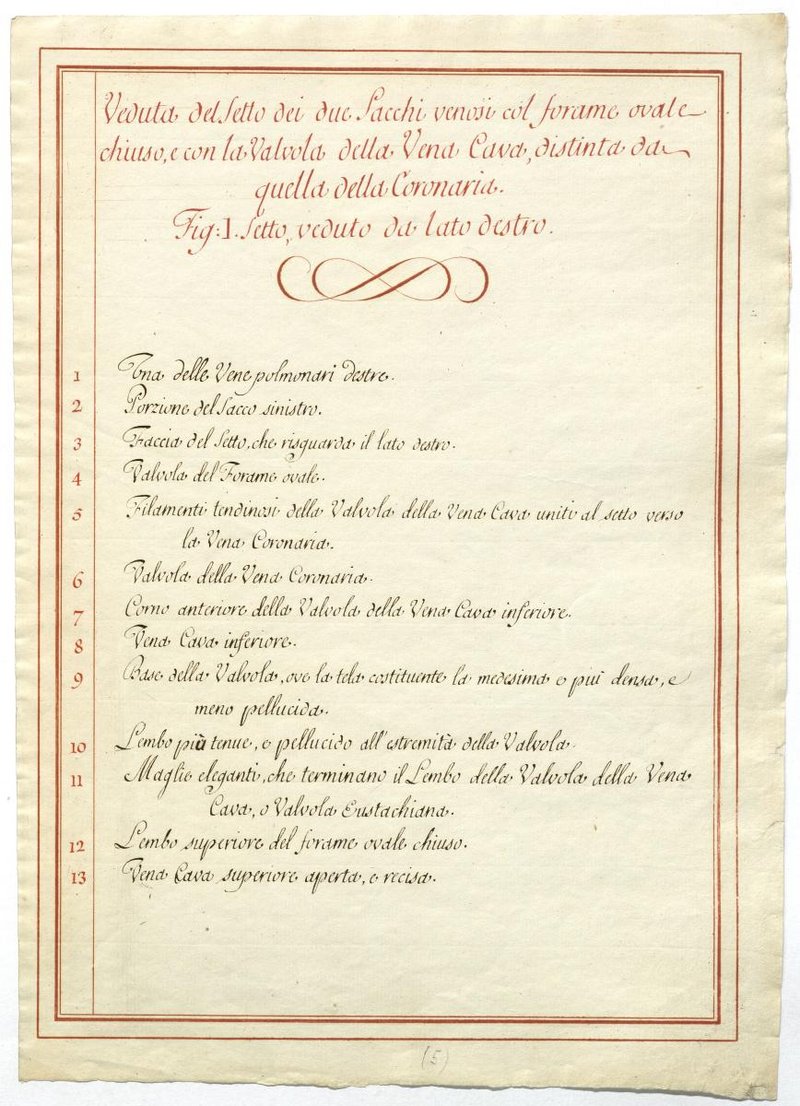 Veduta del Setto dei due Sacchi venosi col forame ovale
chiuso, e con la Valvola della Vena Cava, distinta da
quella della Coronaria.
Fig: 1. Setto, veduto da lato destro.
1 Una delle Vene polmonari destre.
2 Porzione del Sacco sinistro.
3 Faccia del Setto, che risguarda il lato destro.
4 Valvola del Forame ovale.
5 Filamenti tendinosi della Valvola della Vena Cava uniti al setto verso
la Vena Coronaria.
6 Valvola della Vena Coronaria.
7 Corno anteriore della Valvola della Vena Cava inferiore.
8 Vena Cava inferiore.
9 Base della Valvola, ove la tela costituente la medesima e più densa, e
meno pellucida.
10 Lembo più tenue, e pellucido all'estremità della Valvola.
11 Maglie eleganti, che terminano il Lembo della Valvola della Vena
Cava, o Valvola Eustachiana.
12 Lembo superiore del forame ovale chiuso.
13 Vena Cava superiore aperta, e recisa.
(5)